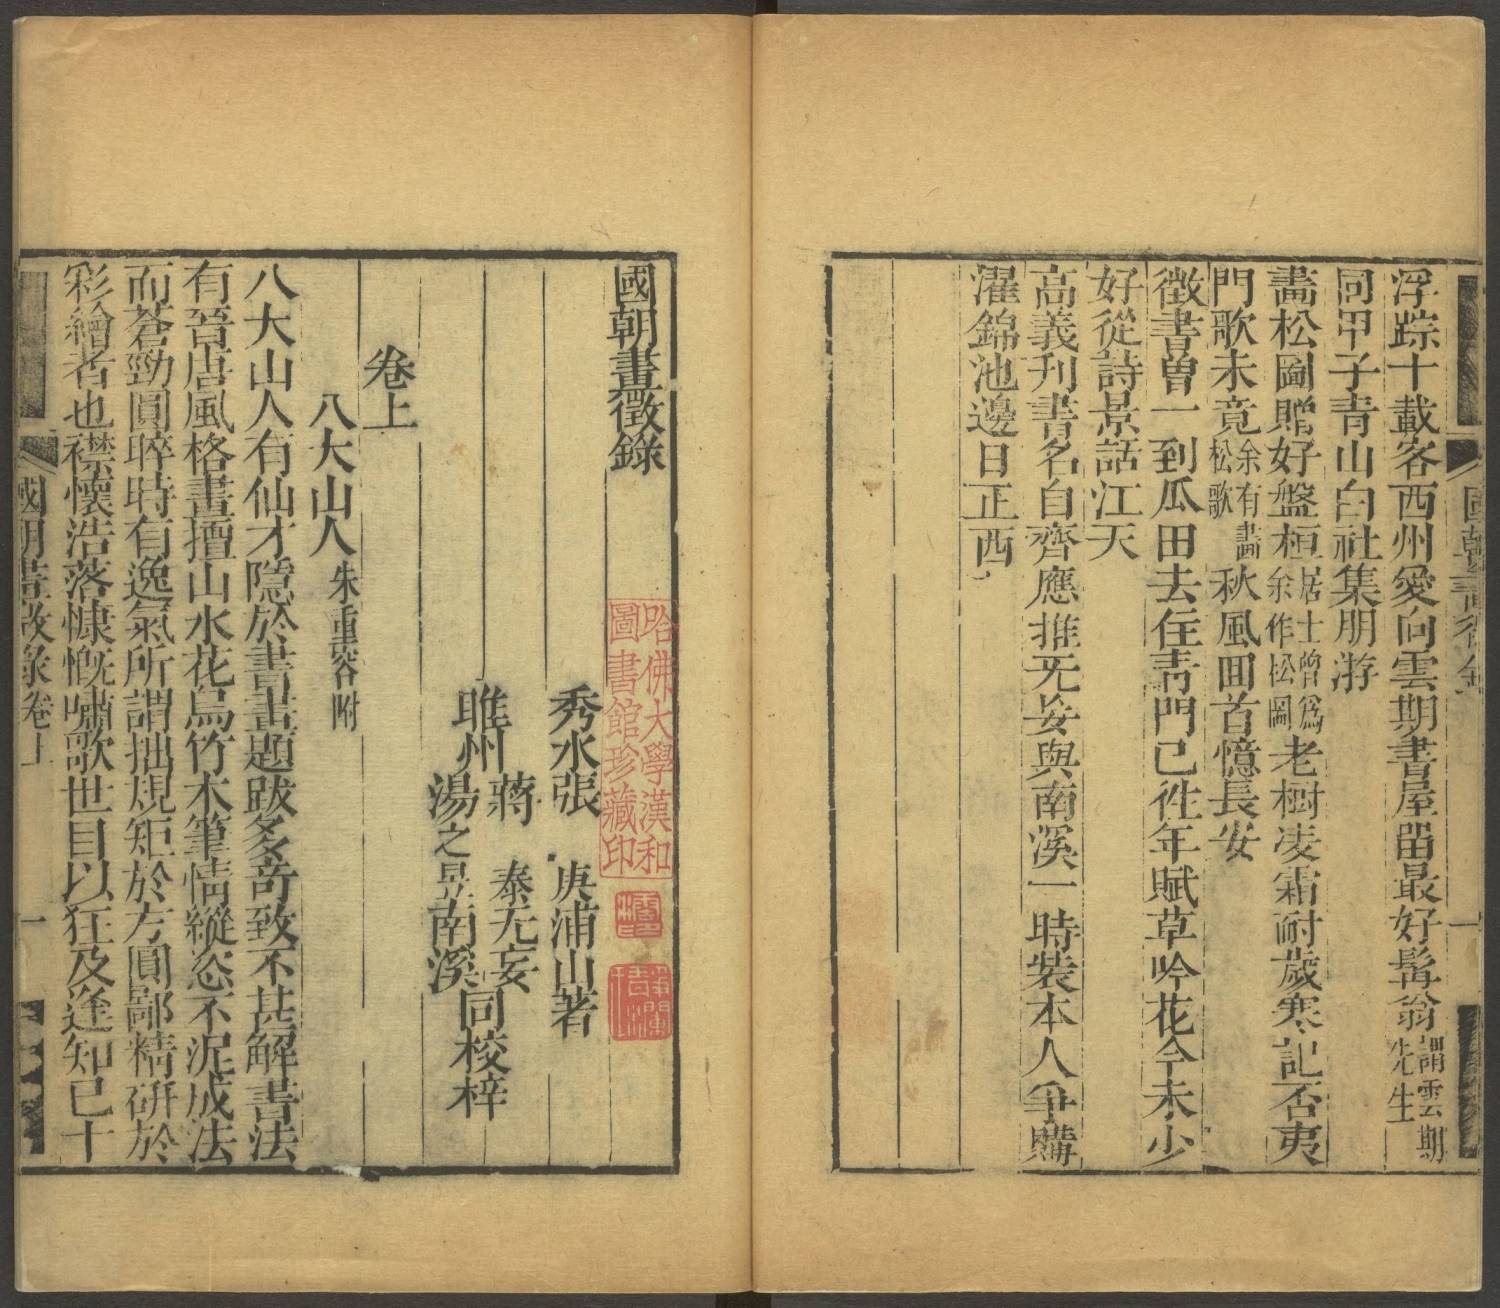 浮踪十載客西州愛向雲期書屋畱最好髯翁謂雲期先生
同甲子青山白社集朋游
畵松圖贈好盤桓居士曾爲余作松圖老樹凌霜耐歲寒記否夷
門歌未竟余有畵松歌秋風回首憶長安
徵書曽一到瓜田去住青門已性年賦草吟花今未少
好從詩景話江天
高義刊書名自齊應推无妄與南溪一時裝本人爭購
濯錦池邊日正西
國朝畫徵錄
秀水張庚浦山著
睢州
蔣泰无妄
湯之昱南溪
同校梓
卷上
八大山人朱重容附
八大山人有仙才隱於書畫題跋多奇致不甚解書法
有晉唐風格畫擅山水花鳥竹木筆情縱恣不泥成法
而蒼勁圓晬時有逸氣所謂拙規矩於方圓鄙精研於
彩繪者也襟懷浩落慷慨嘯歌世目以狂及逢知已十
國朝畫徵錄卷上
一
哈佛大學漢和圖書館珍藏印